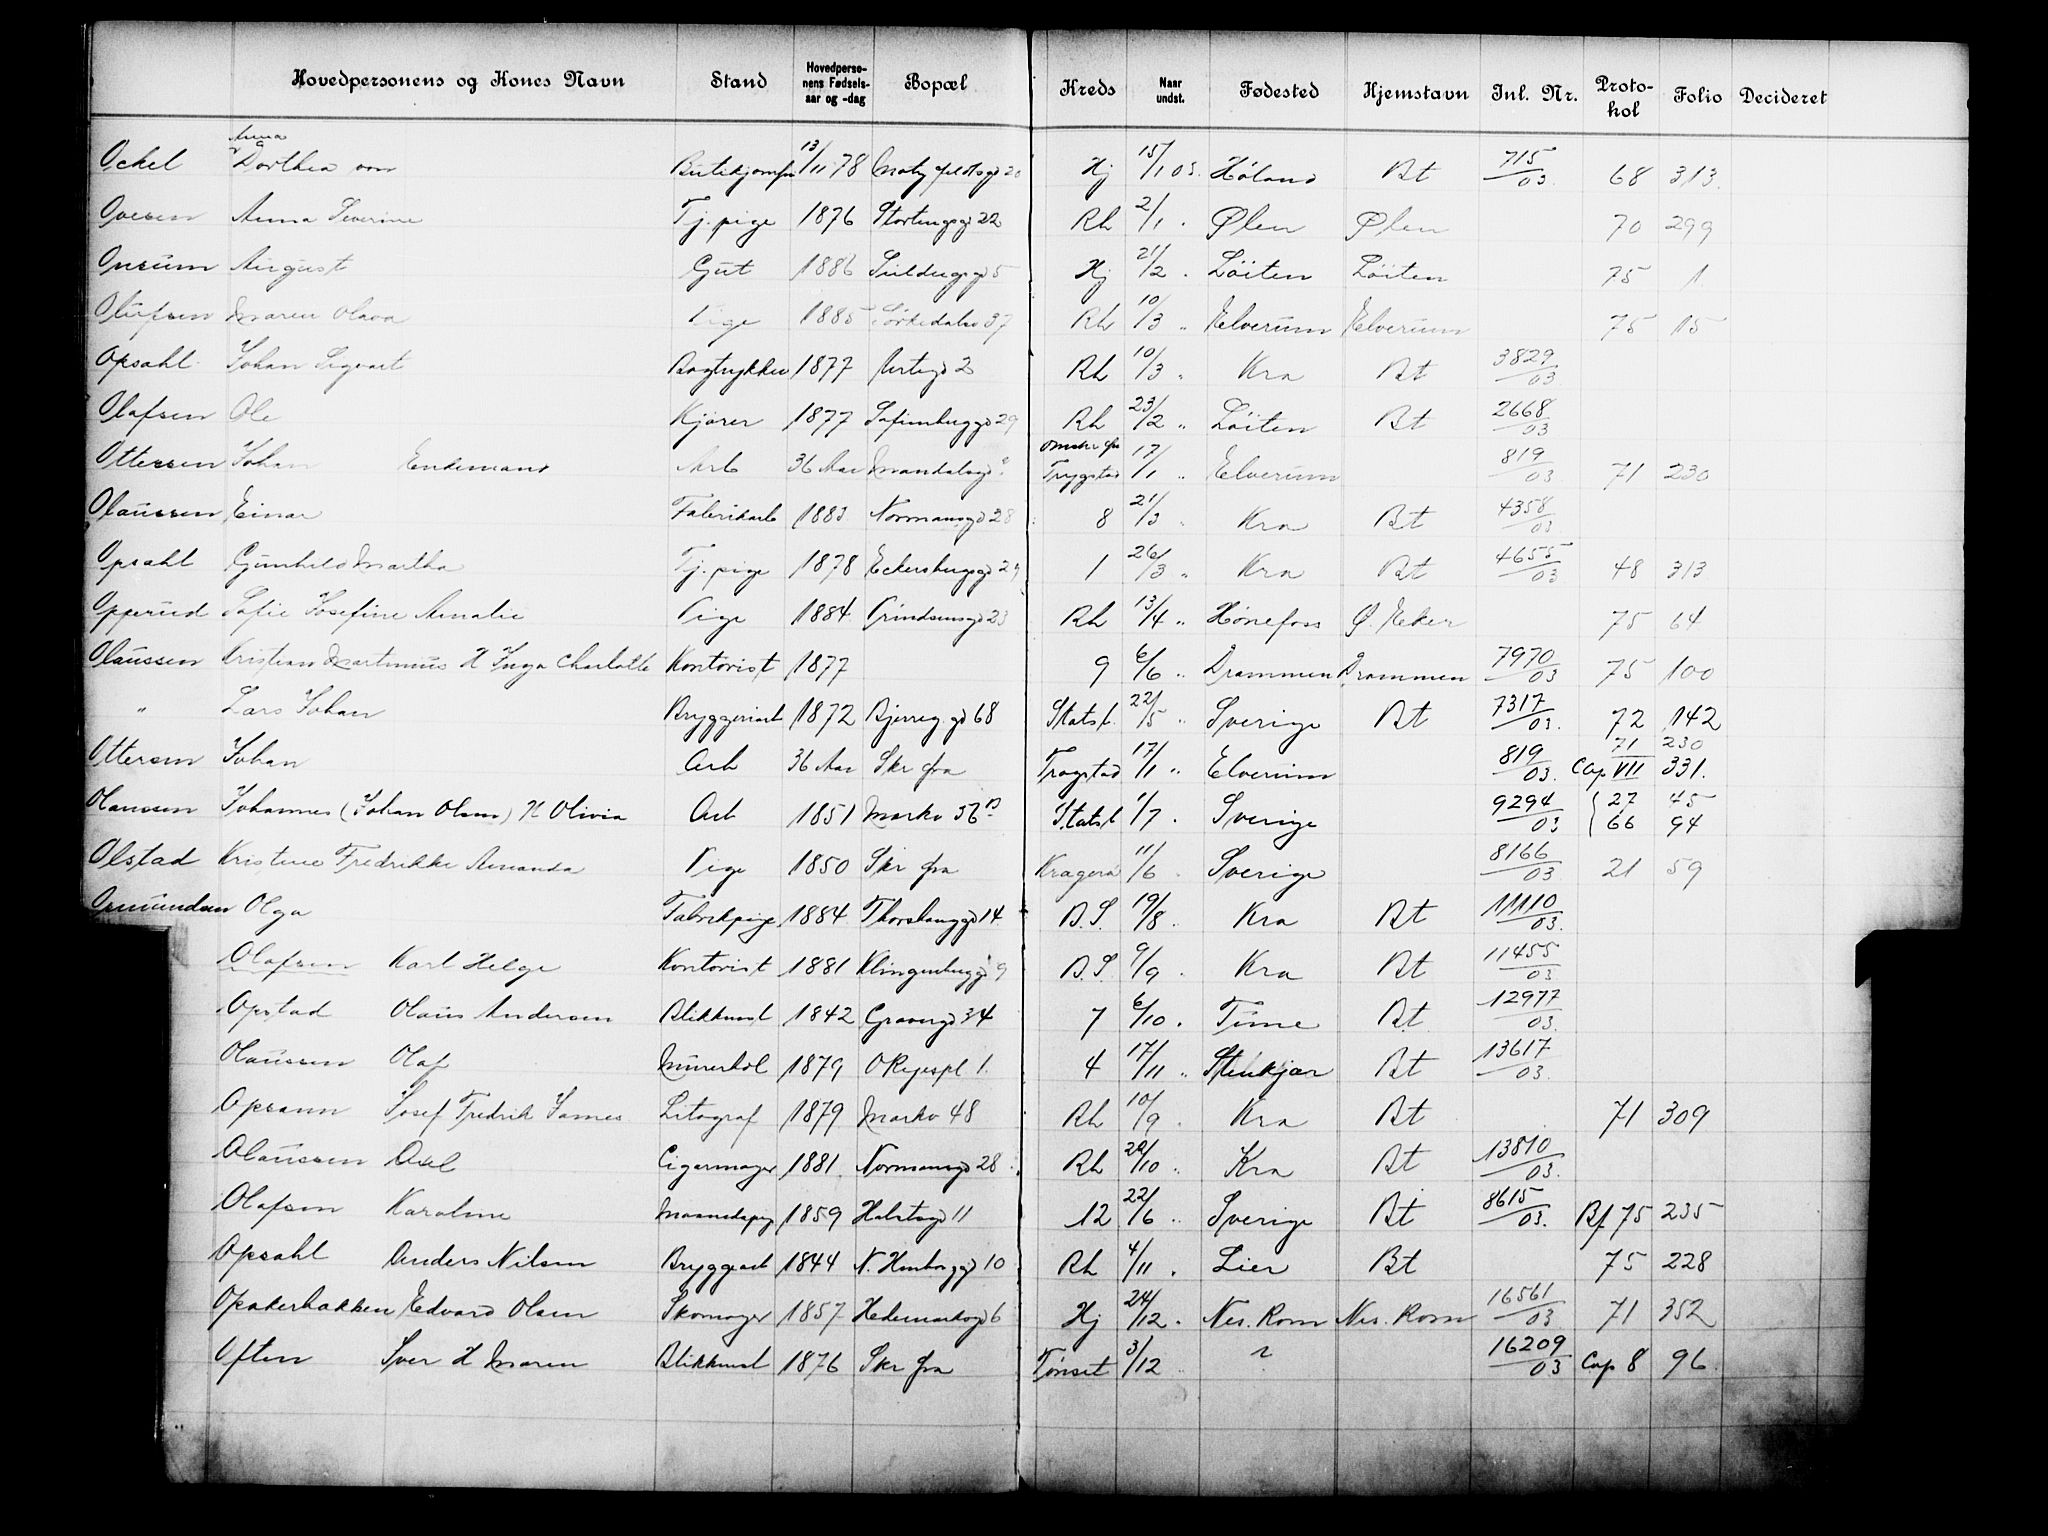 Hovedpersonens og Kones Navn Stand Hovedperso-nens Fødsels-aar og -dag Bopæl Kreds Naar undst. Fødested Hjemstavn Inl. Nr. Proto-kol Folio Decideret
Anna
Ockel Dorthea von 13/11 78 20 Hj 15/1 03. Høland Bt 715/03 68 313.
Ovesen Anna Severine Tj. pige 1876 Stortingsgd 22 Rh 2/1 . Ølen Ølen 70 299
Onsum August Gut 1886 5 Hj 21/2 . Löiten Löiten 75 1
Olufsen Maren Olava Pige 1885 Sørkedalsv 37 Rh 10/3 " Elverum Elverum 75 15
Opsahl Johan Sigvart Bogtrykker 1877 Urtegd 2 Rh 10/3 " Kra Bt 3829/03
Olafsen Ole Kjører 1877 Sofienberggd 29 Rh 23/2 " Löiten Bt 2668/03
Ottersen Johan Enkemand Arb 36 Aar Mandalsgd Trygstad 17/1 " Elverum 819/03 71 230
Olaussen Einar Fabrikarb 1883 Normansgd 28 8 21/3 " Kra Bt 4358/03
Opsahl Gunhild Martha Tj. pige 1878 Eckersbergsgd 29 1 26/3 " Kra Bt 4655/03 48 313
Opperud Sofie Josefine Amalie Pige 1884 Gründensgd 23 Rh 13/4 " Hönefoss Ø. Eker 75 64
Olaussen Kristian Martinius H Inga Charlotte Kontorist 1877 9 6/6 " Drammen Drammen 7970/03 75 100
" Lars Johan Bryggeriarb 1872 Bjerreg.gd 68 Statsb. 22/5 " Sverige Bt 7317/03. 72 142
Ottersen Johan Arb 36 Aar Skr fra Trøgstad 17/1 " Elverum 819/03. 71 230 Cop VII 331.
Olaussen Johannes (Johan Olsen) H Olivia Arb 1851 Markv 36 B Statsb 1/7 . Sverige 9294/03 { 27 45 66 94
Olstad Kristine Fredrikke Amanda Pige 1850 Skr fra Kragerø 11/6 . Sverige 8166/03 21 59
Osmundsen Olga Fabrikpige 1884 Thorshauggd 14 B.S. 19/8 . Kra Bt 11110/03.
Olafsen Karl Helge Kontorist 1881 Klingenberggd 9 B.S. 9/9 . Kra Bt 11455/03
Opstad Olaus Andersen Blikkensl 1842 Gravergd 34 7 6/10 . Time Bt 12977/03.
Olaussen Olaf Murerhdl 1879 O Rejespl 1. 4 17/11 " Stenkjær Bt 13617/03.
Opsann Josef Fredrik James Litograf 1879 Markv 48 Rh 10/9 . Kra Bt 71 309
Olaussen Axel Cigarmager 1881 Normansgd 28 Rh 20/10 " Kra Bt 13810/03.
Olafsen Karoline 1859 11 12 22/6 " Sverige Bt 8615/03. Bf 75 235
Opsahl Anders Nilsen Bryggearb 1844 10 Rh 4/11 . Lier Bt 75 228
Opakerbakken Edvard Olsen Skomager 1857 Hedemarksgd 6 Hj 24/12 . Nes. Rom Nes. Rom 16561/03 71 352
Often Iver H Maren Blikkensl 1876 Skr fra Tønset 3/12 " ? 16209/03 Cop 8 96.